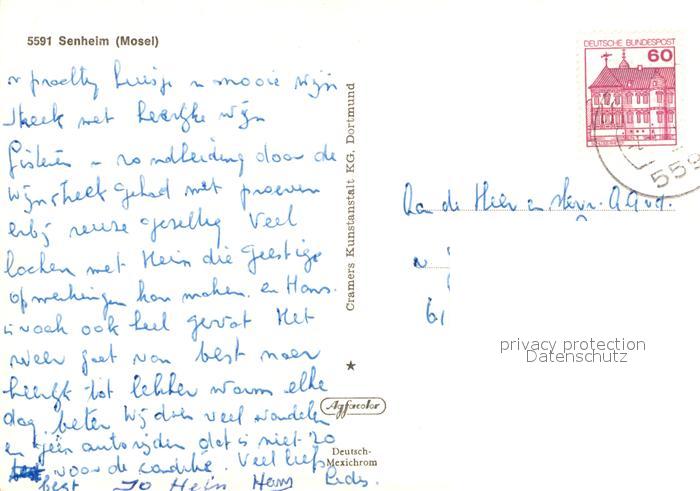 5591 Senheim (Mosel)
n prachtig huisje n mooie wijn
streek met heerlijke wijn
Gisteren n rondleiding door de
wijnstreek gehad met proeven
erbij reuze gezellig Veel
lachen met Hein die geestige
opmerkingen kan maken. en Hans.
is vaak ook heel gevat Het
weer gaat van best naar
heerlijk tot lekker warm elke
dag beter Wij doen veel wandelen
en géén autorijden dat is niet zo
voor de conditie. Veel liefs
best Jo Hein Hans
Cramers Kunstanstalt KG. Dortmund
Agfacolor
Deutsch-
Mexichrom
DEUTSCHE BUNDESPOST
60
559
Aan de Heer en Mevr.
privacy protection
Datenschutz